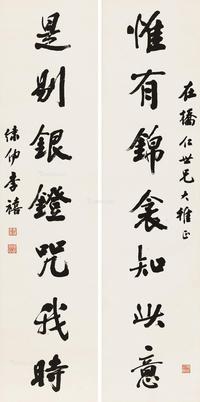 在橋仁世兄大雅正
惟有錦衾知此意
是剔銀鐙咒我時
緣仲李禧